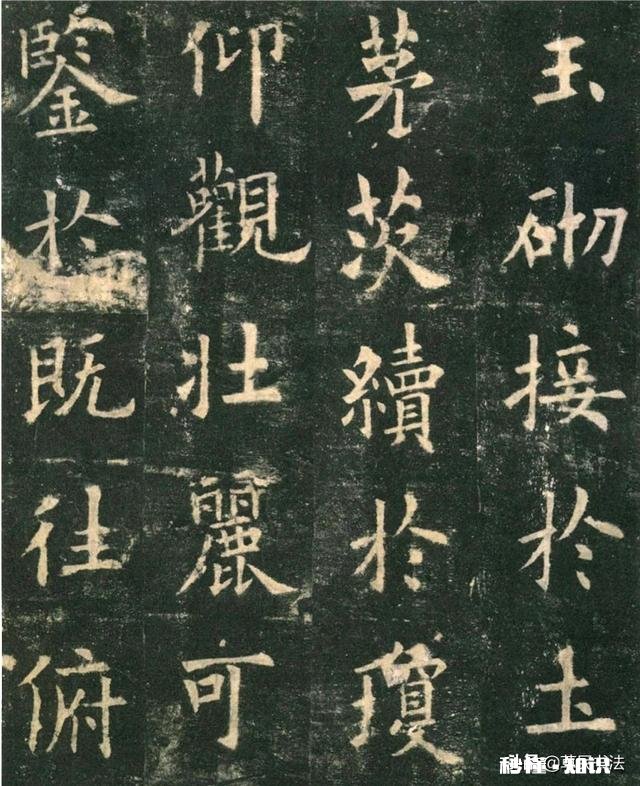 玉砌接於土
茅茨續於瓊
仰觀壯麗可
鑒於既往俯
秒懂·知识